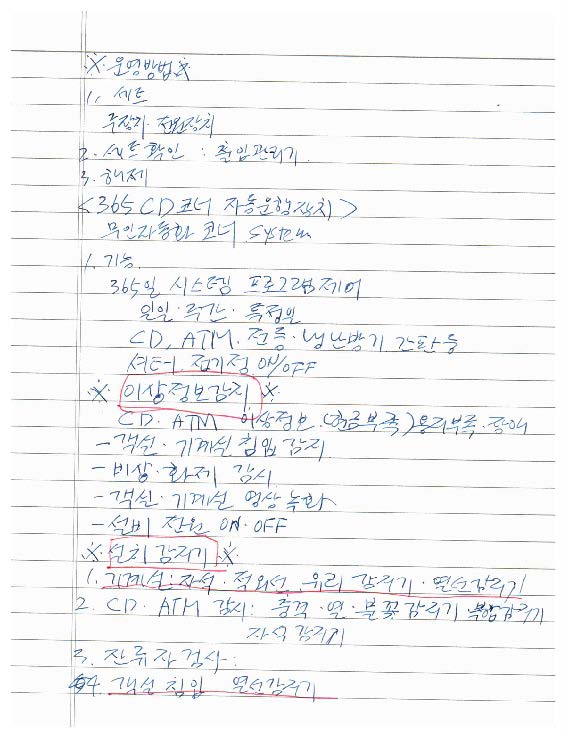 ※ 운영방법 ※
1. 세트
주장치 전원장치
2. 세트확인 : 출입관리기
3. 해제
<365 CD코너 자동운행장치>
무인자동화 코너 system
1. 기능
365일 시스템 프로그램제어
일일·주간·특정일
CD, ATM. 전등·냉난방기 간판등
셔터 전기정 ON/OFF
※ 이상정보감지 ※
CD. ATM 이상정보. (현금부족) 용지부족·장애
- 객실·기계실 침입 감지
- 비상·화재 감시
- 객실·기계실 영상 녹화
- 설비 전원 ON·OFF
※ 설치감지기 ※
1. 기계실: 자석·적외선 유리 감지기·열선감지기
2. CD·ATM 감시: 충격·열·불꽃감지기 복합감지기
자석감지기
3. 잔류자검사:
4. 객실 침입 열선감지기